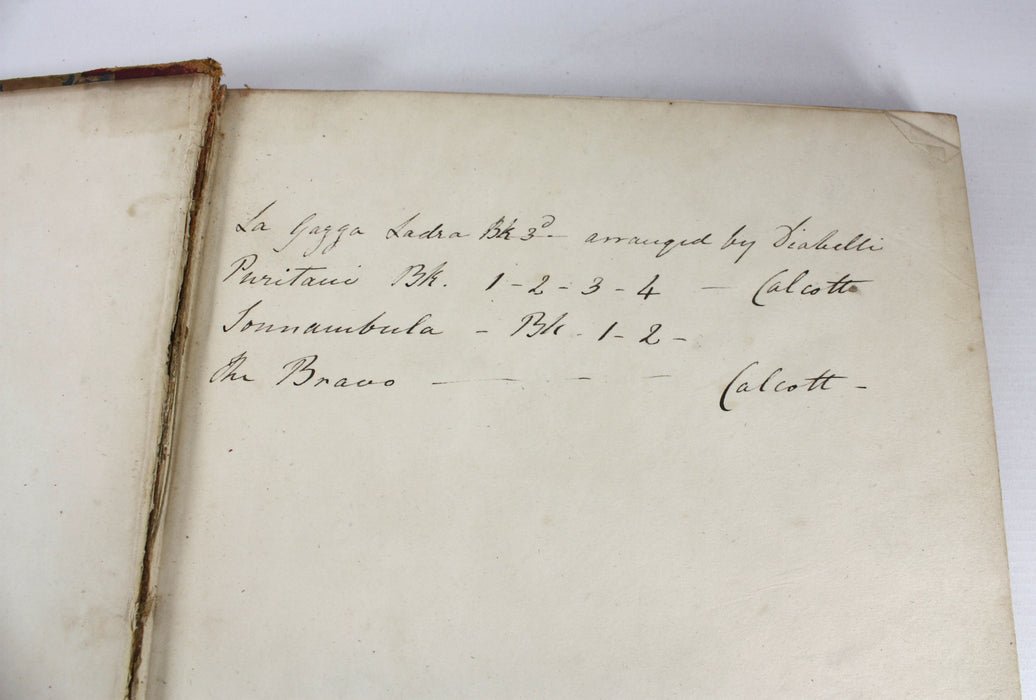 La Gazza Ladra Bk 3d - arranged by Diabelli
Puritani Bk. 1 - 2 - 3 - 4 - Calcott
Sonnambula - Bk - 1 - 2 -
The Bravo - - - Calcott -